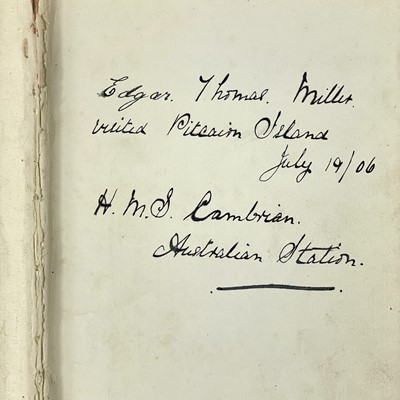 Edgar. Thomas. Miller.
visited Pitcairn Island
July 19/06
H.M.S. Cambrian.
Australian Station.